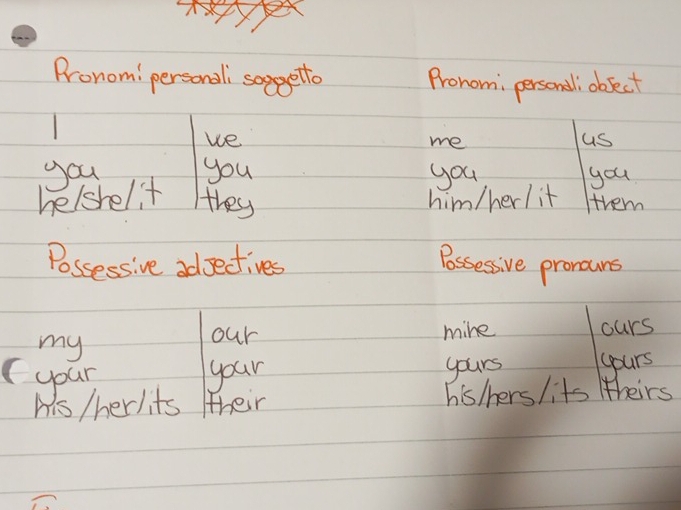 Pronomi personali soggetto
I | we
you | you
he/she/it | they
Pronomi personali object
me | us
you | you
him/her/it | them
Possessive adjectives
my | our
your | your
his/her/its | their
Possessive pronouns
mine | ours
yours | yours
his/hers/its | theirs